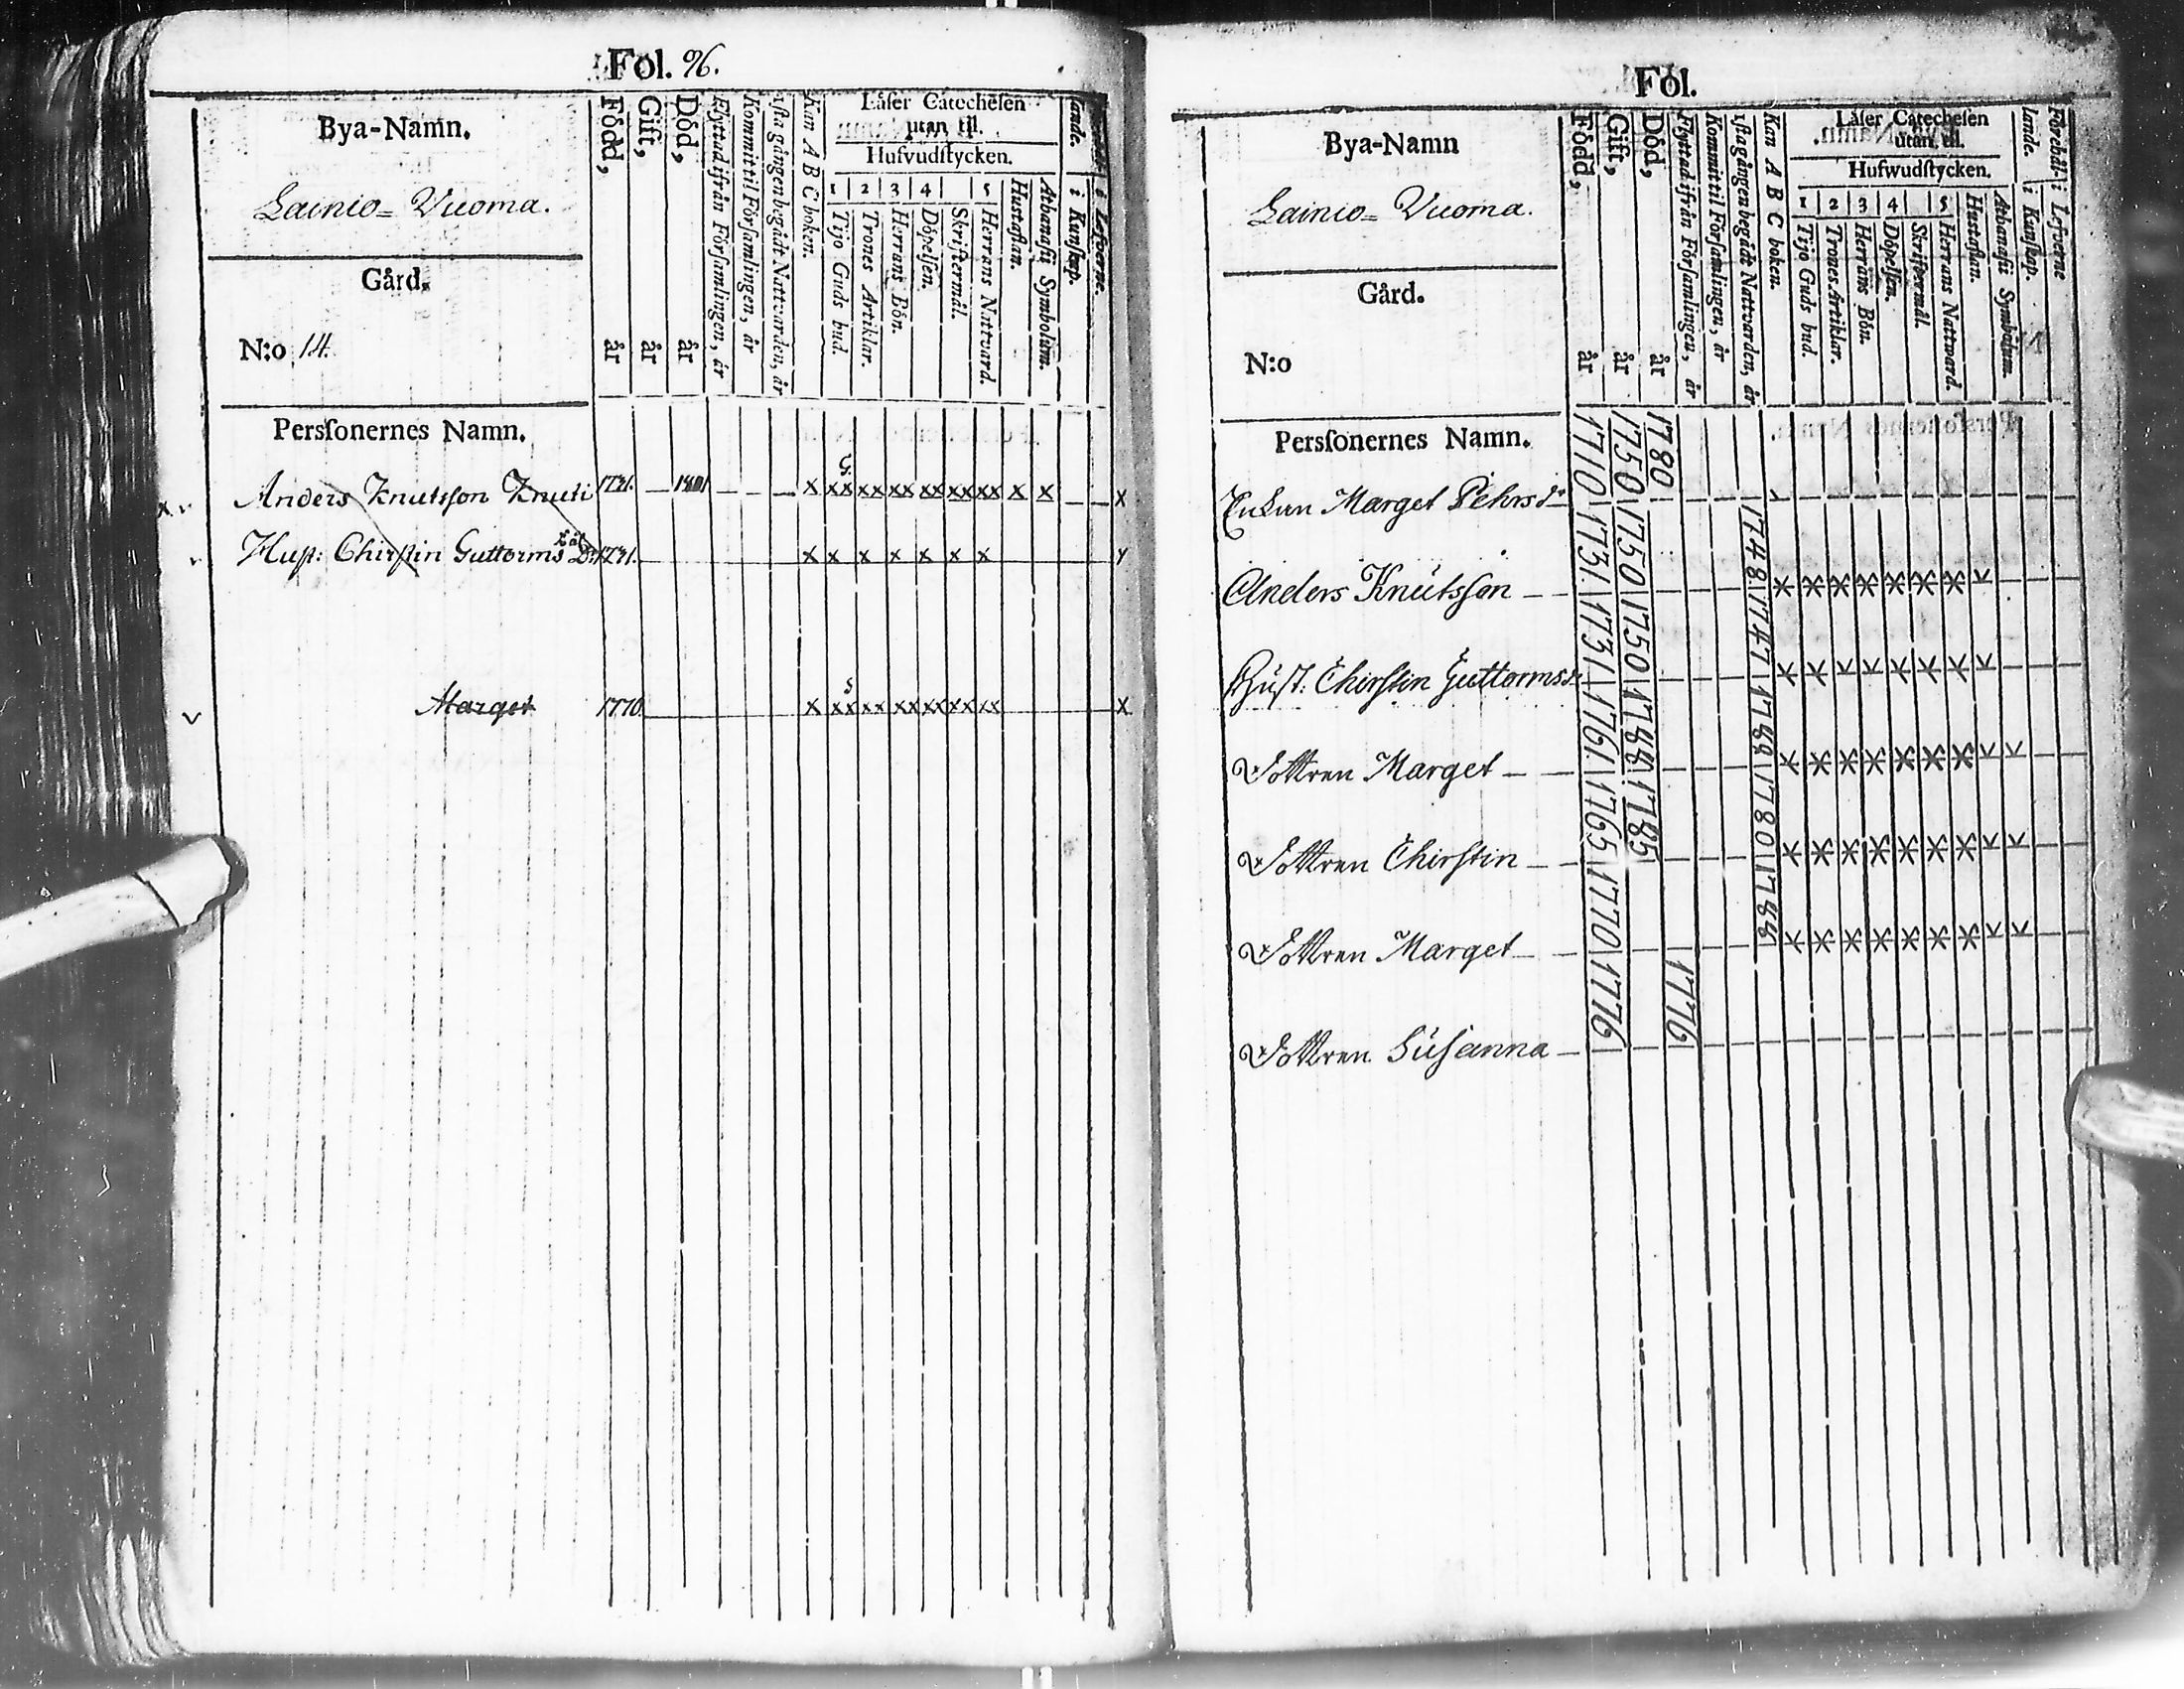 Fol. 96.
Bya-Namn.
Lainio= Vuoma.
Gård.
N:o 14.
Född, år
Gift, år
Död, år
Flyttad ifrån Församlingen, år
Kommit til Församlingen, år
1sta gången begådt Nattvarden, år
Kan A B C boken.
Låser Catechesen
utan til.
Hufvudstycken.
1 2 3 4 5
Tijo Guds bud.
Trones Artiklar.
Herrans Bön.
Döpelsen.
Skriftermål.
Herrans Nattvard.
Hustaflan.
Athanasii Symbolum.
lande. i Kunskap.
i Lefverne.
Persſonernes Namn.
Anders Knutsſon Knuti 1731. 1801 x G. xx xx xx xx xx xx x x x
Hust: Chirstin Guttorms Dr 1731. x x x x x x x
Marget 1770 x s xx xx xx xx xx xx x
Fol.
Bya-Namn
Lainio= Vuoma.
Gård.
N:o
Född, år
Gift, år
Död, år
Flyttad ifrån Församlingen, år
Kommit til Församlingen, år
1sta gången begådt Nattvarden, år
Kan A B C boken.
Låser Catechesen
utan til.
Hufwudstycken.
1 2 3 4 5
Tijo Guds bud.
Trones Artiklar.
Herrans Bön.
Döpelsen.
Skriftermål.
Herrans Nattward.
Hustaflan.
Athanasii Symbolum.
lande. i Kunskap.
Förehål- i Lefverne
Persſonernes Namn.
Enkan Marget Pehrsdr 1710 1750 1780
Anders Knutsſon 1731. 1750 1748.
Hust. Chirstin Guttormsdr 1731 1750 1747
Dottren Marget 1761. 1788
Dottren Chirstin 1765 1785 1780
Dottren Marget 1770 1788
Dottren Susanna 1776 1776